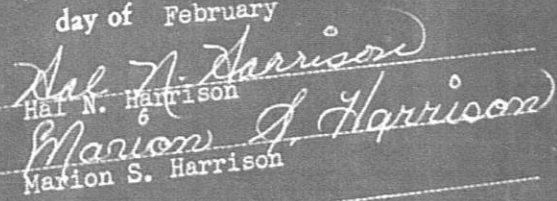 day of February
Hal N. Harrison
Hal N. Harrison
6
Marion S. Harrison
Marion S. Harrison